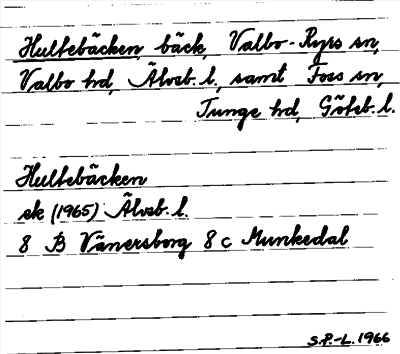 Hultebäcken, bäck, Valbo-Ryrs sn,
Valbo hd, Älvsb. l., samt Foss sn,
Tunge hd, Göteb. l.
Hultebäcken
ek (1965) Älvsb. l.
8 B Vänersborg 8 c Munkedal
S.P.-L. 1966